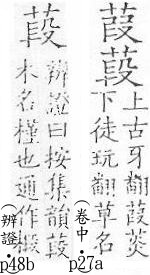 葭葮
上古牙翻葭菼
下徒玩翻草名
(卷中・p27a)
葮
辨證曰按集韻葮
木名槿也通作椴
(辨證・p48b)